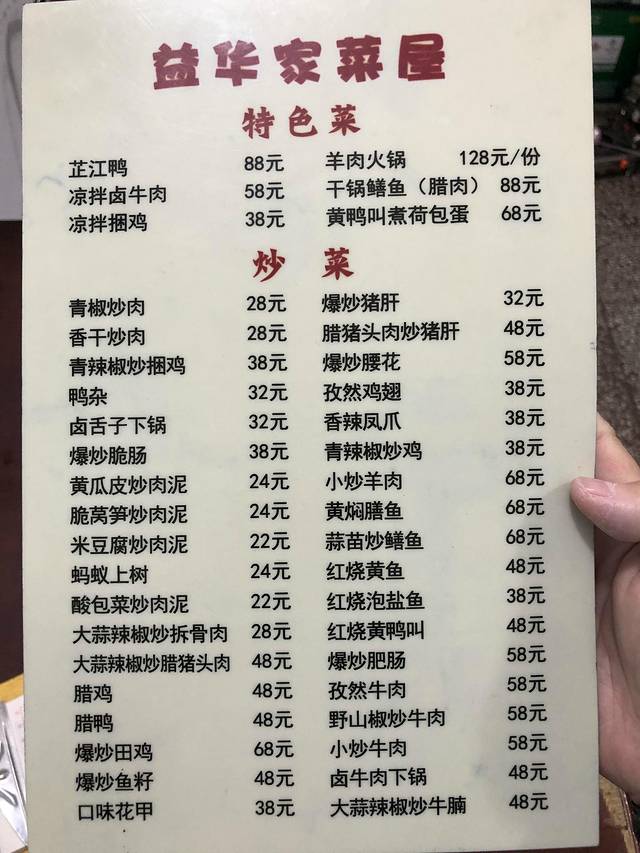 益华家菜屋
特色菜
芷江鸭 88元 羊肉火锅 128元/份
凉拌卤牛肉 58元 干锅鳝鱼（腊肉） 88元
凉拌捆鸡 38元 黄鸭叫煮荷包蛋 68元
炒 菜
青椒炒肉 28元 爆炒猪肝 32元
香干炒肉 28元 腊猪头肉炒猪肝 48元
青辣椒炒捆鸡 38元 爆炒腰花 58元
鸭杂 32元 孜然鸡翅 38元
卤舌子下锅 32元 香辣凤爪 38元
爆炒脆肠 38元 青辣椒炒鸡 38元
黄瓜皮炒肉泥 24元 小炒羊肉 68元
脆莴笋炒肉泥 24元 黄焖膳鱼 68元
米豆腐炒肉泥 22元 蒜苗炒鳝鱼 68元
蚂蚁上树 24元 红烧黄鱼 48元
酸包菜炒肉泥 22元 红烧泡盐鱼 38元
大蒜辣椒炒拆骨肉 28元 红烧黄鸭叫 48元
大蒜辣椒炒腊猪头肉 48元 爆炒肥肠 58元
腊鸡 48元 孜然牛肉 58元
腊鸭 48元 野山椒炒牛肉 58元
爆炒田鸡 68元 小炒牛肉 58元
爆炒鱼籽 48元 卤牛肉下锅 48元
口味花甲 38元 大蒜辣椒炒牛腩 48元